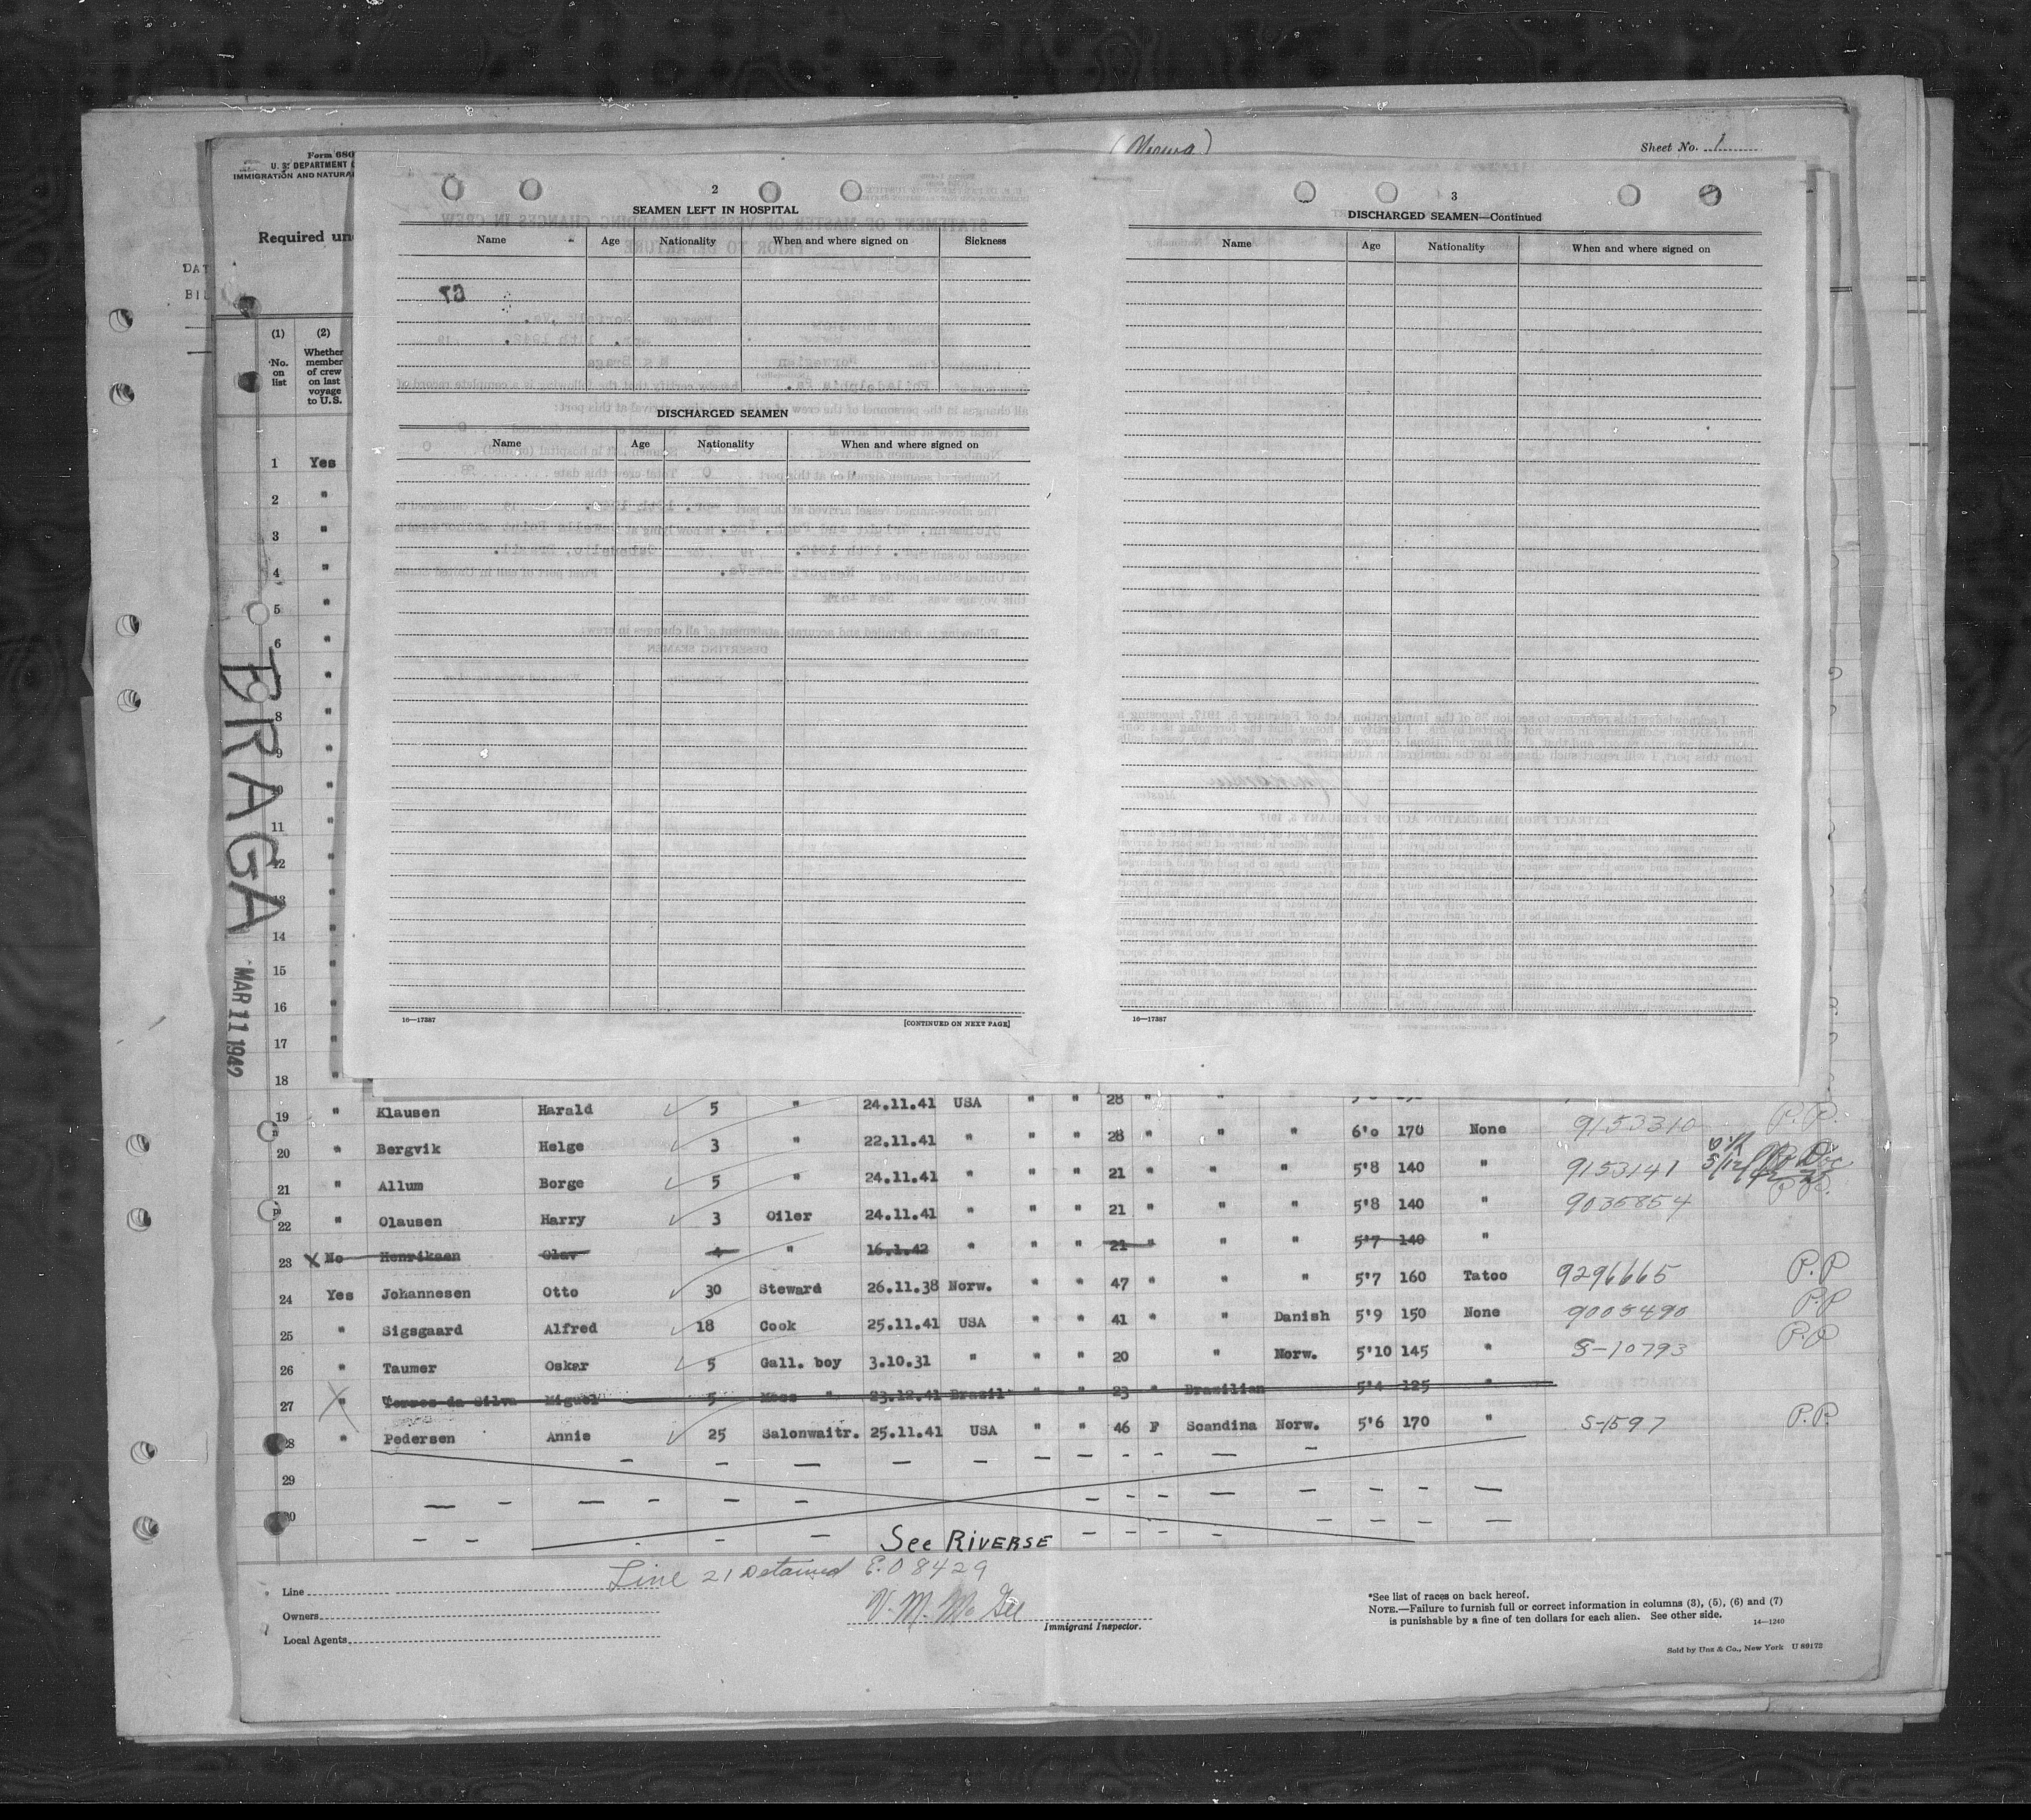 Form 680
U. S. DEPARTMENT
IMMIGRATION AND NATURAL
Sheet No. 1
Required un
DAT
BIL
(1)
No. on list
(2)
Whether member of crew on last voyage to U.S.
2
SEAMEN LEFT IN HOSPITAL
Name Age Nationality When and where signed on Sickness
DISCHARGED SEAMEN
Name Age Nationality When and where signed on
16—17387 [CONTINUED ON NEXT PAGE]
3
DISCHARGED SEAMEN—Continued
Name Age Nationality When and where signed on
16—17387
BRAGA
MAR 11 1942
1 Yes
2 "
3 "
4 "
5 "
6 "
7 "
8 "
9 "
10 "
11 "
12 "
13 "
14 "
15 "
16 "
17 "
18 "
19 " Klausen Harald 5 " 24.11.41 USA " " 28 " "
20 " Bergvik Helge 3 " 22.11.41 " " " 28 " " " 6'0 170 None 9153310 P.P.
21 " Allum Borge 5 " 24.11.41 " " " 21 " " " 5'8 140 " 9153141
22 " Olausen Harry 3 Oiler 24.11.41 " " " 21 " " " 5'8 140 " 9035854 P.P.
23 X No Henriksen Olav 4 " 16.1.42 " " " 21 " " " 5'7 140 "
24 Yes Johannesen Otto 30 Steward 26.11.38 Norw. " " 47 " " " 5'7 160 Tatoo 9296665 P.P
25 " Sigsgaard Alfred 18 Cook 25.11.41 USA " " 41 " " Danish 5'9 150 None 9005490 P.P
26 " Taumer Oskar 5 Gall. boy 3.10.31 " " " 20 " Norw. 5'10 145 " S-10793 P.P
27 " Torres da Silva Miguel 5 Mess " 23.12.41 Brazil " " 23 " Brazilian 5'4 125 "
28 " Pedersen Annie 25 Salonwaitr. 25.11.41 USA " " 46 F Scandina Norw. 5'6 170 " S-1597 P.P.
29
30
See RIVERSE
Line 21 Detained E.O 8429
V. M. McGee
Immigrant Inspector.
Line
Owners
Local Agents
*See list of races on back hereof.
NOTE.—Failure to furnish full or correct information in columns (3), (5), (6) and (7)
is punishable by a fine of ten dollars for each alien. See other side.
14—1240
Sold by Unz & Co., New York U 89172